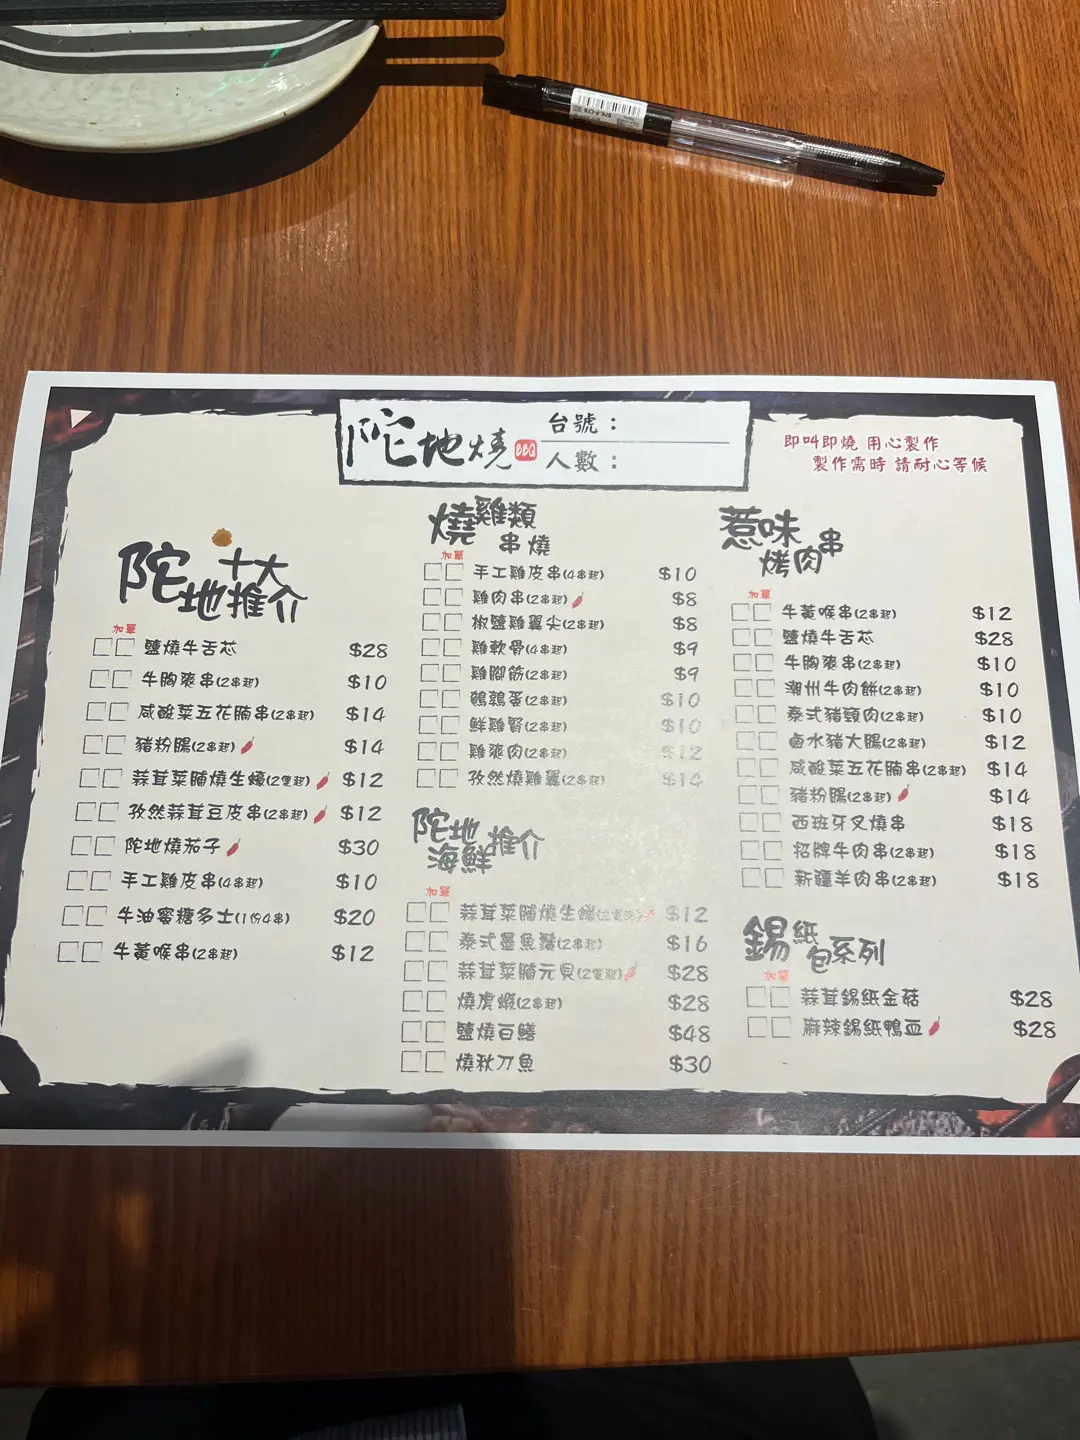 陀地燒 BBQ
台號：
人數：
即叫即燒 用心製作
製作需時 請耐心等候
陀地十大推介
加單
鹽燒牛舌芯 $28
牛胸爽串(2串起) $10
咸酸菜五花腩串(2串起) $14
豬粉腸(2串起) $14
蒜茸菜脯燒生蠔(2隻起) $12
孜然蒜茸豆皮串(2串起) $12
陀地燒茄子 $30
手工雞皮串(4串起) $10
牛油蜜糖多士(1份4串) $20
牛黃喉串(2串起) $12
燒雞類串燒
加單
手工雞皮串(4串起) $10
雞肉串(2串起) $8
椒鹽雞翼尖(2串起) $8
雞軟骨(4串起) $9
雞腳筋(2串起) $9
鵪鶉蛋(2串起) $10
鮮雞腎(2串起) $10
雞髀肉(2串起) $12
孜然燒雞翼(2串起) $14
陀地海鮮推介
加單
蒜茸菜脯燒生蠔(2隻起) $12
泰式墨魚鬚(2串起) $16
蒜茸菜脯元貝(2隻起) $28
燒虎蝦(2串起) $28
鹽燒白鱔 $48
燒秋刀魚 $30
惹味烤肉串
加單
牛黃喉串(2串起) $12
鹽燒牛舌芯 $28
牛胸爽串(2串起) $10
潮州牛肉餅(2串起) $10
泰式豬頸肉(2串起) $10
鹵水豬大腸(2串起) $12
咸酸菜五花腩串(2串起) $14
豬粉腸(2串起) $14
西班牙叉燒串 $18
招牌牛肉串(2串起) $18
新疆羊肉串(2串起) $18
錫紙包系列
加單
蒜茸錫紙金菇 $28
麻辣錫紙鴨血 $28